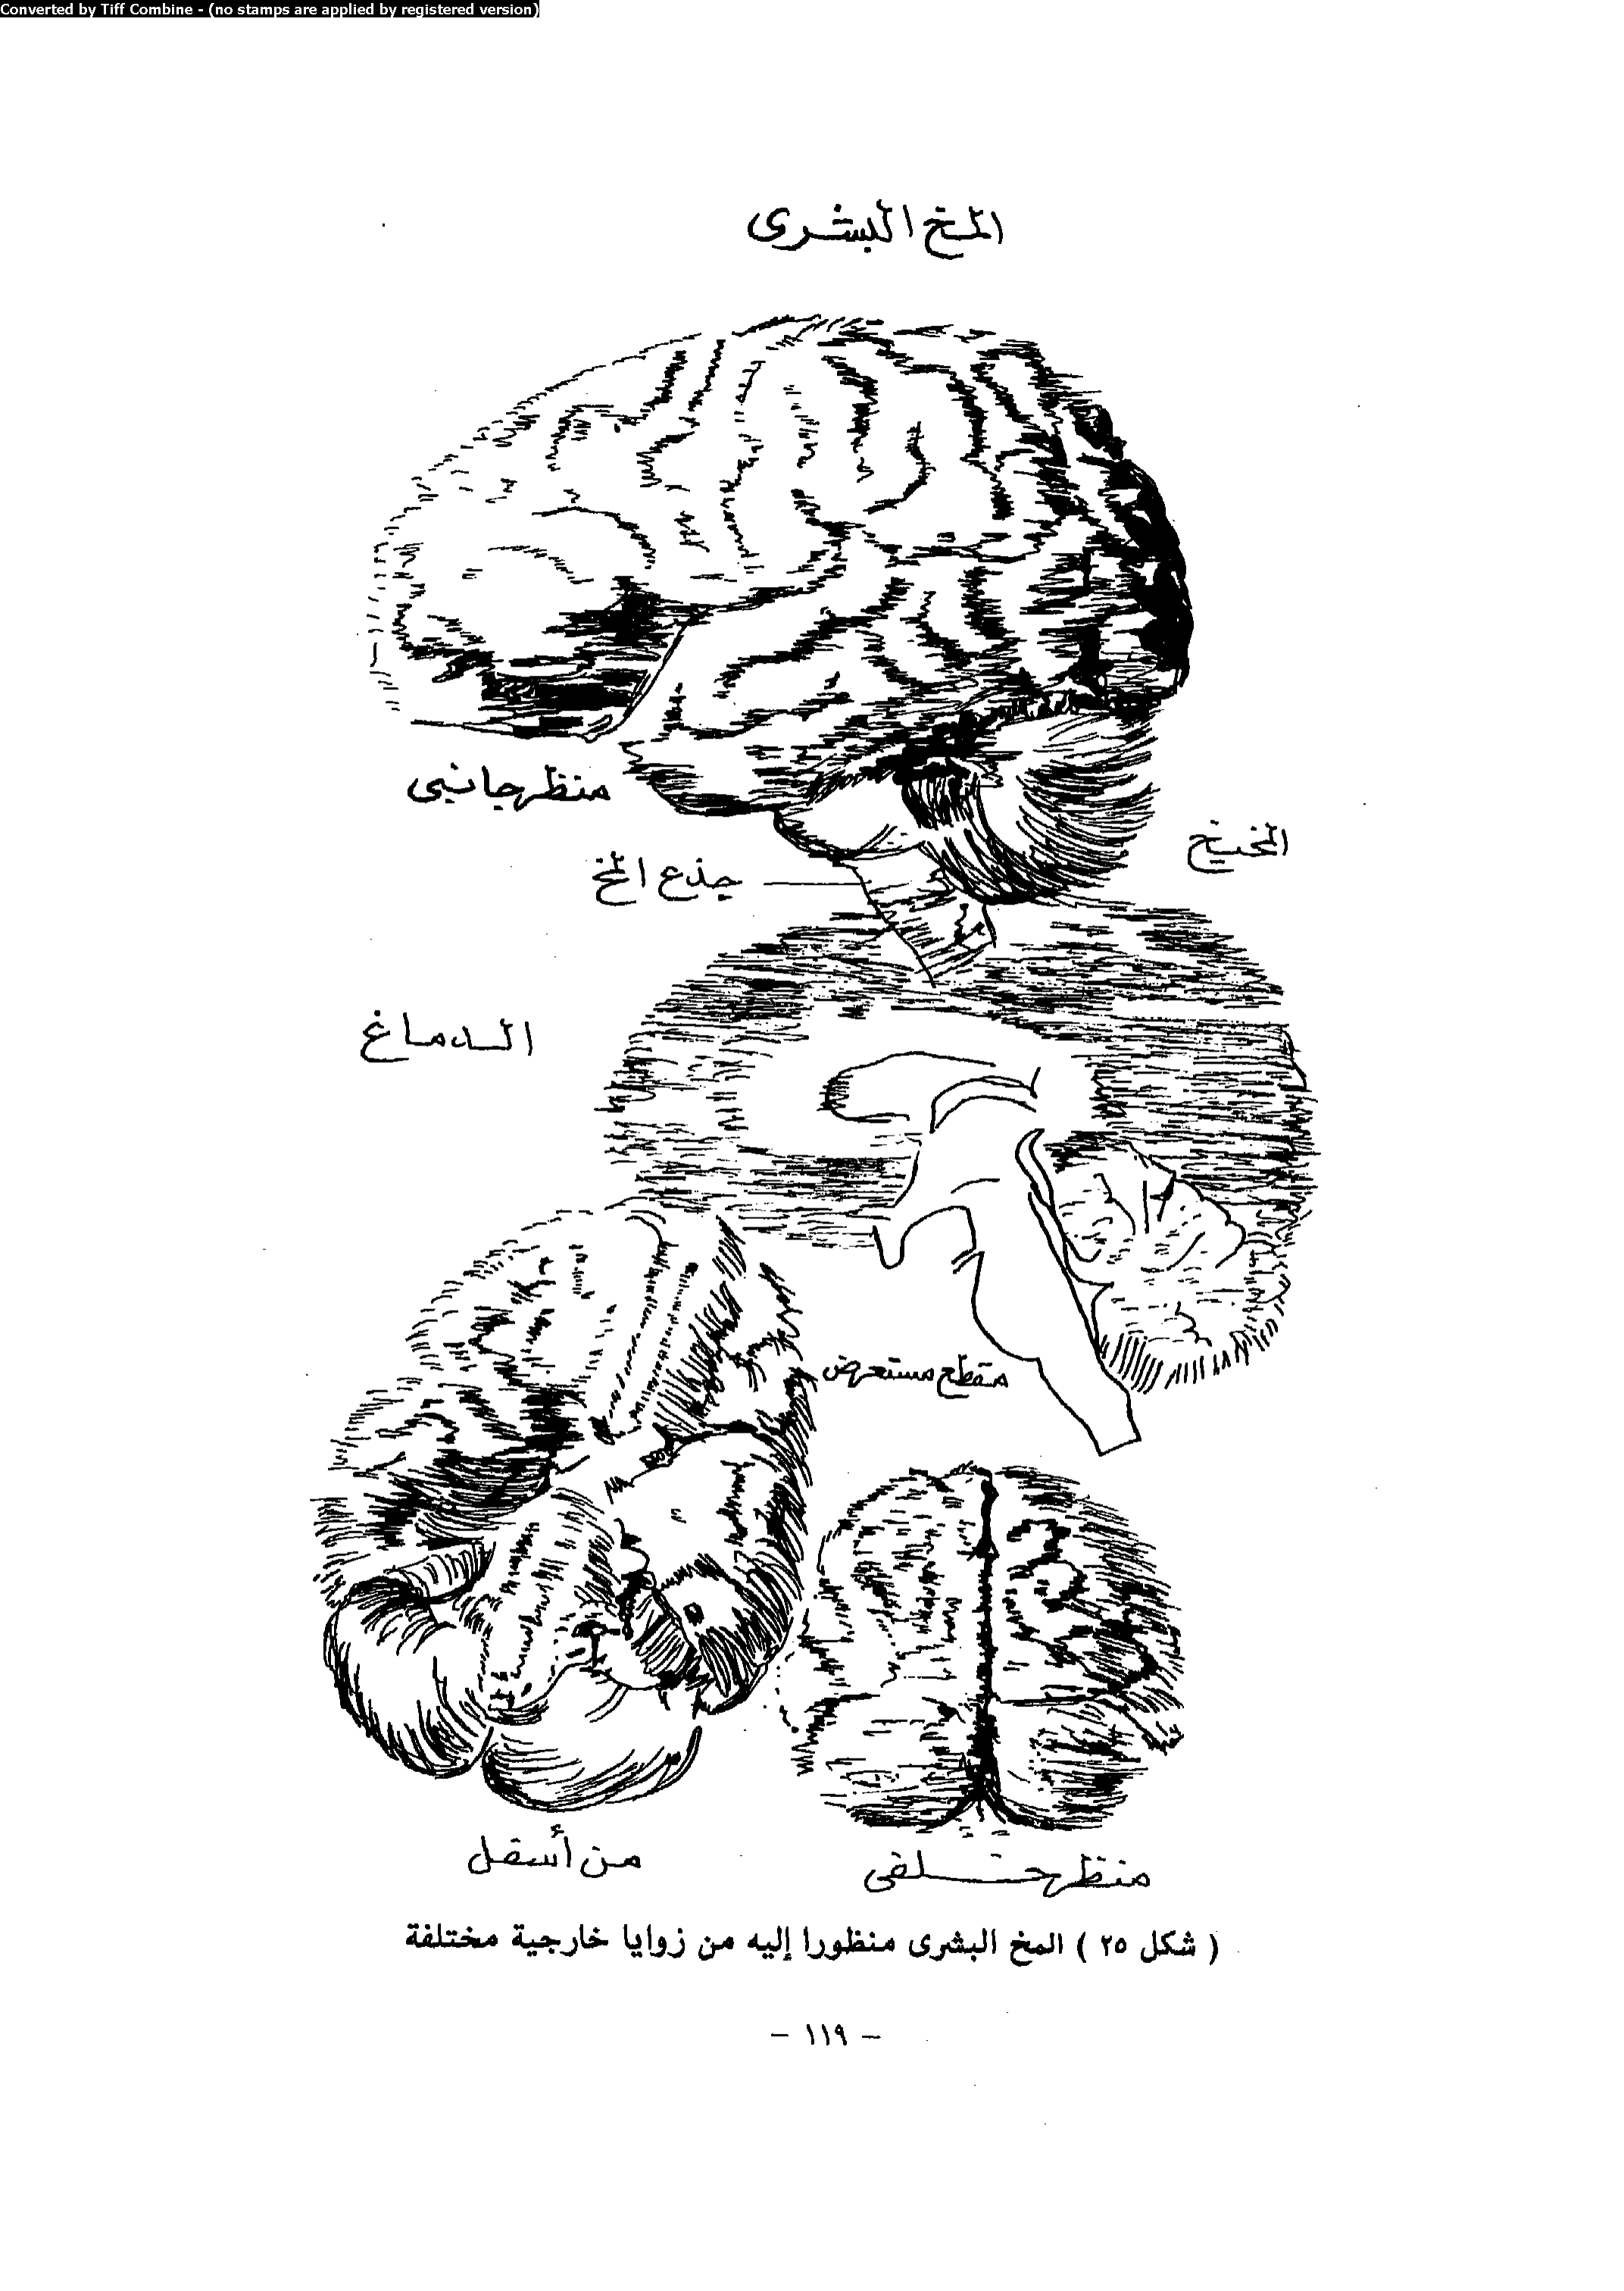 Converted by Tiff Combine - (no stamps are applied by registered version)
المخ البشرى
منظر جانبى
المخيخ
جذع المخ
الدماغ
مقطع مستعرض
من أسفل
منظر خلفى
( شكل ٢٥ ) المخ البشرى منظورا إليه من زوايا خارجية مختلفة
– ١١٩ –